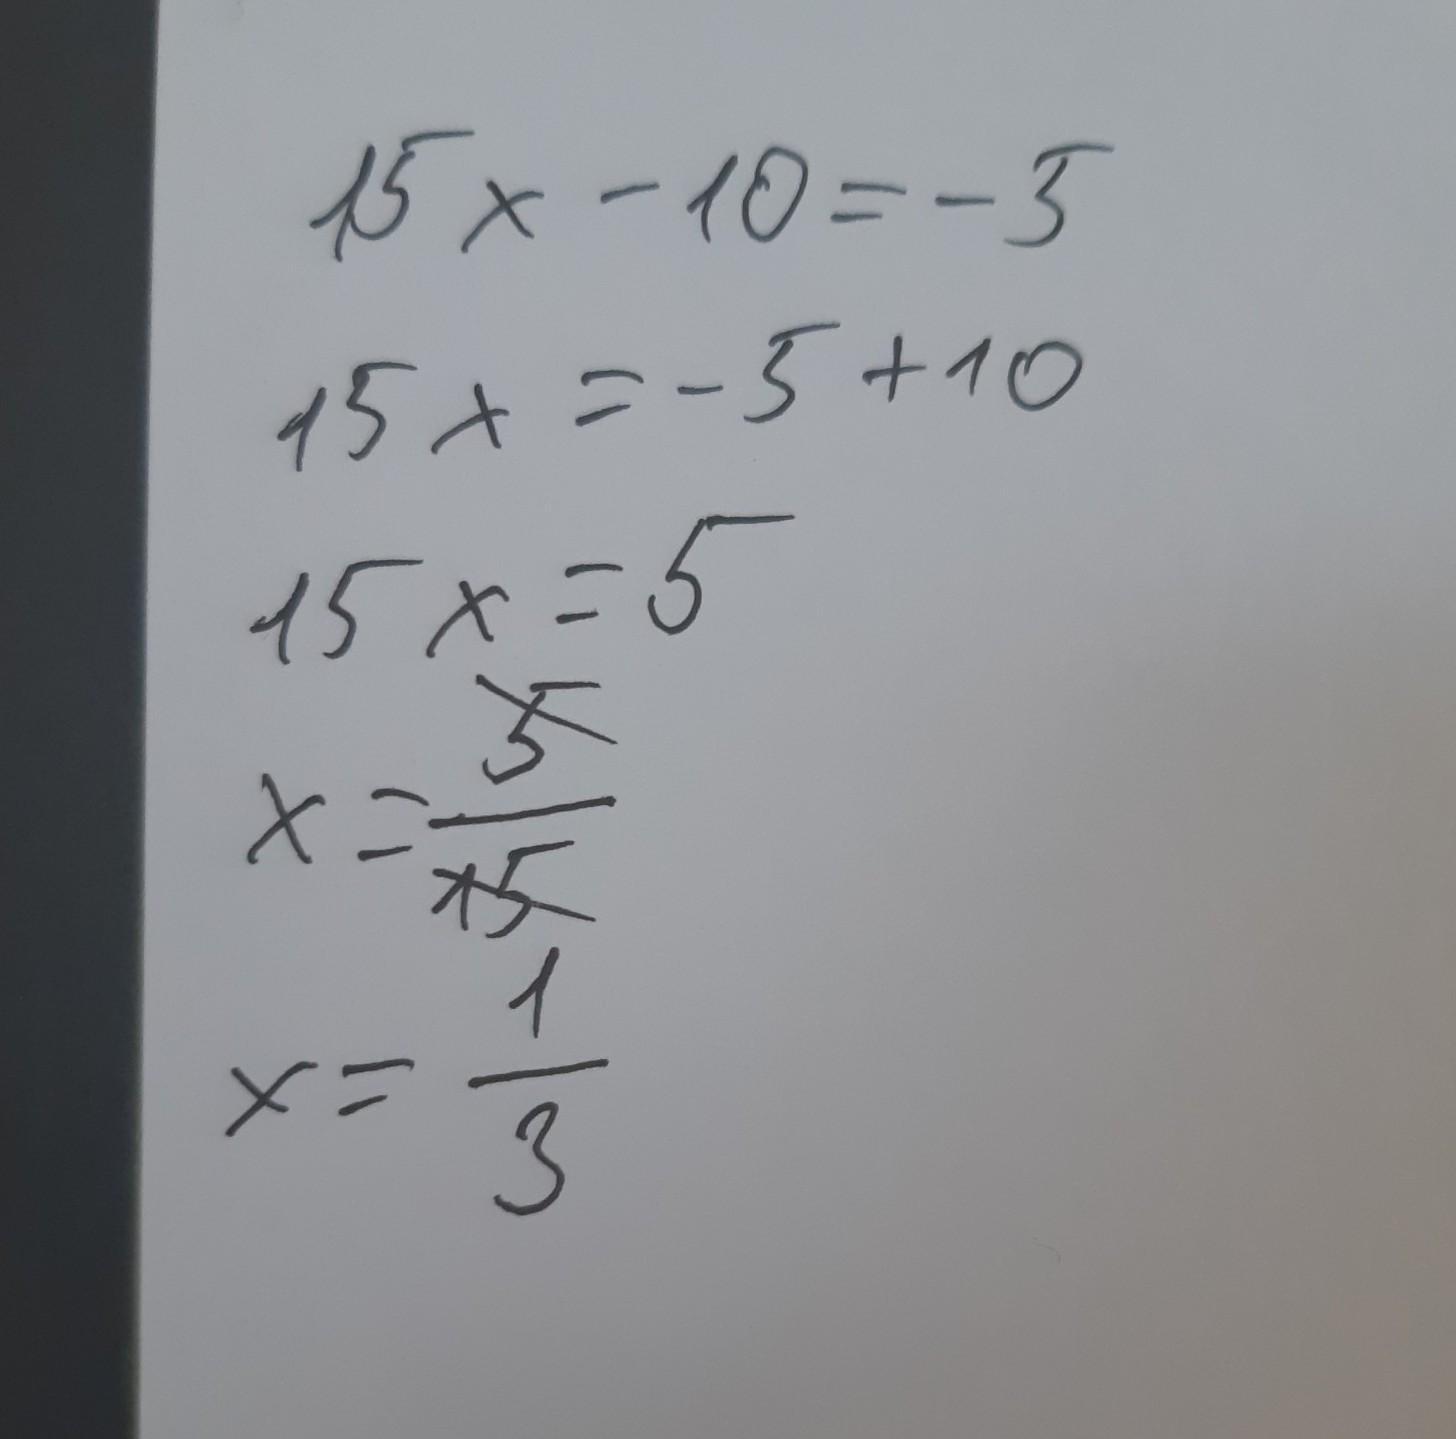 15x - 10 = -5
15x = -5 + 10
15x = 5
x = 5/15
x = 1/3